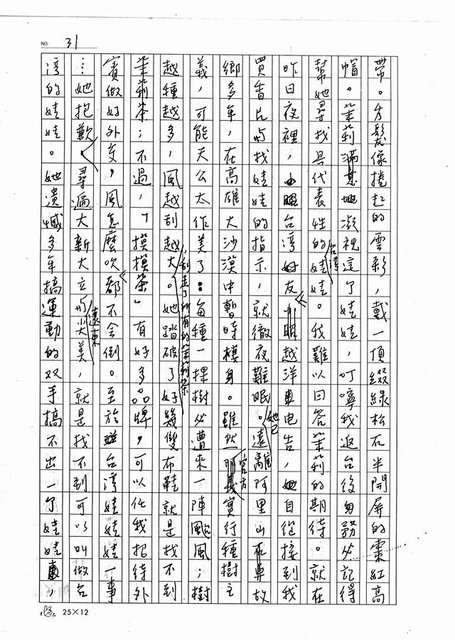 NO. 31
帶。秀髮像捲起的雲彩，戴一頂綴綠松石半開屏的棗紅高
帽。茉莉滿意地凝視這了娃娃，叮嚀我返台後自務必記得
幫她尋找具代表性的台灣娃娃。我難以回答茉莉的期待。就在
昨日夜裡，由台灣好友越洋電告，她自從接到我
買香巴拉娃娃的指示，就徹夜難眠。她已遠離阿里山在鼻故
鄉多年，在高雄大沙漠中暫時棲身。雖然官方實行種樹主
義，可能，天公太作美了：每種一棵樹必遭來一陣颱風；樹
越種越多，風越刮越大。她踏破了好幾雙布鞋就是找不到
茉莉茶；不過，「摸摸茶」有好多品牌，可以任我招待外
賓做好外交，風怎麼吹都不會倒。至於台灣娃娃一事
…她抱歉，尋遍大新大立遠東尖美，就是找不到可以叫做台
灣的娃娃。她潰憾多年搞運動的双手搞不出一了娃娃，
25×12